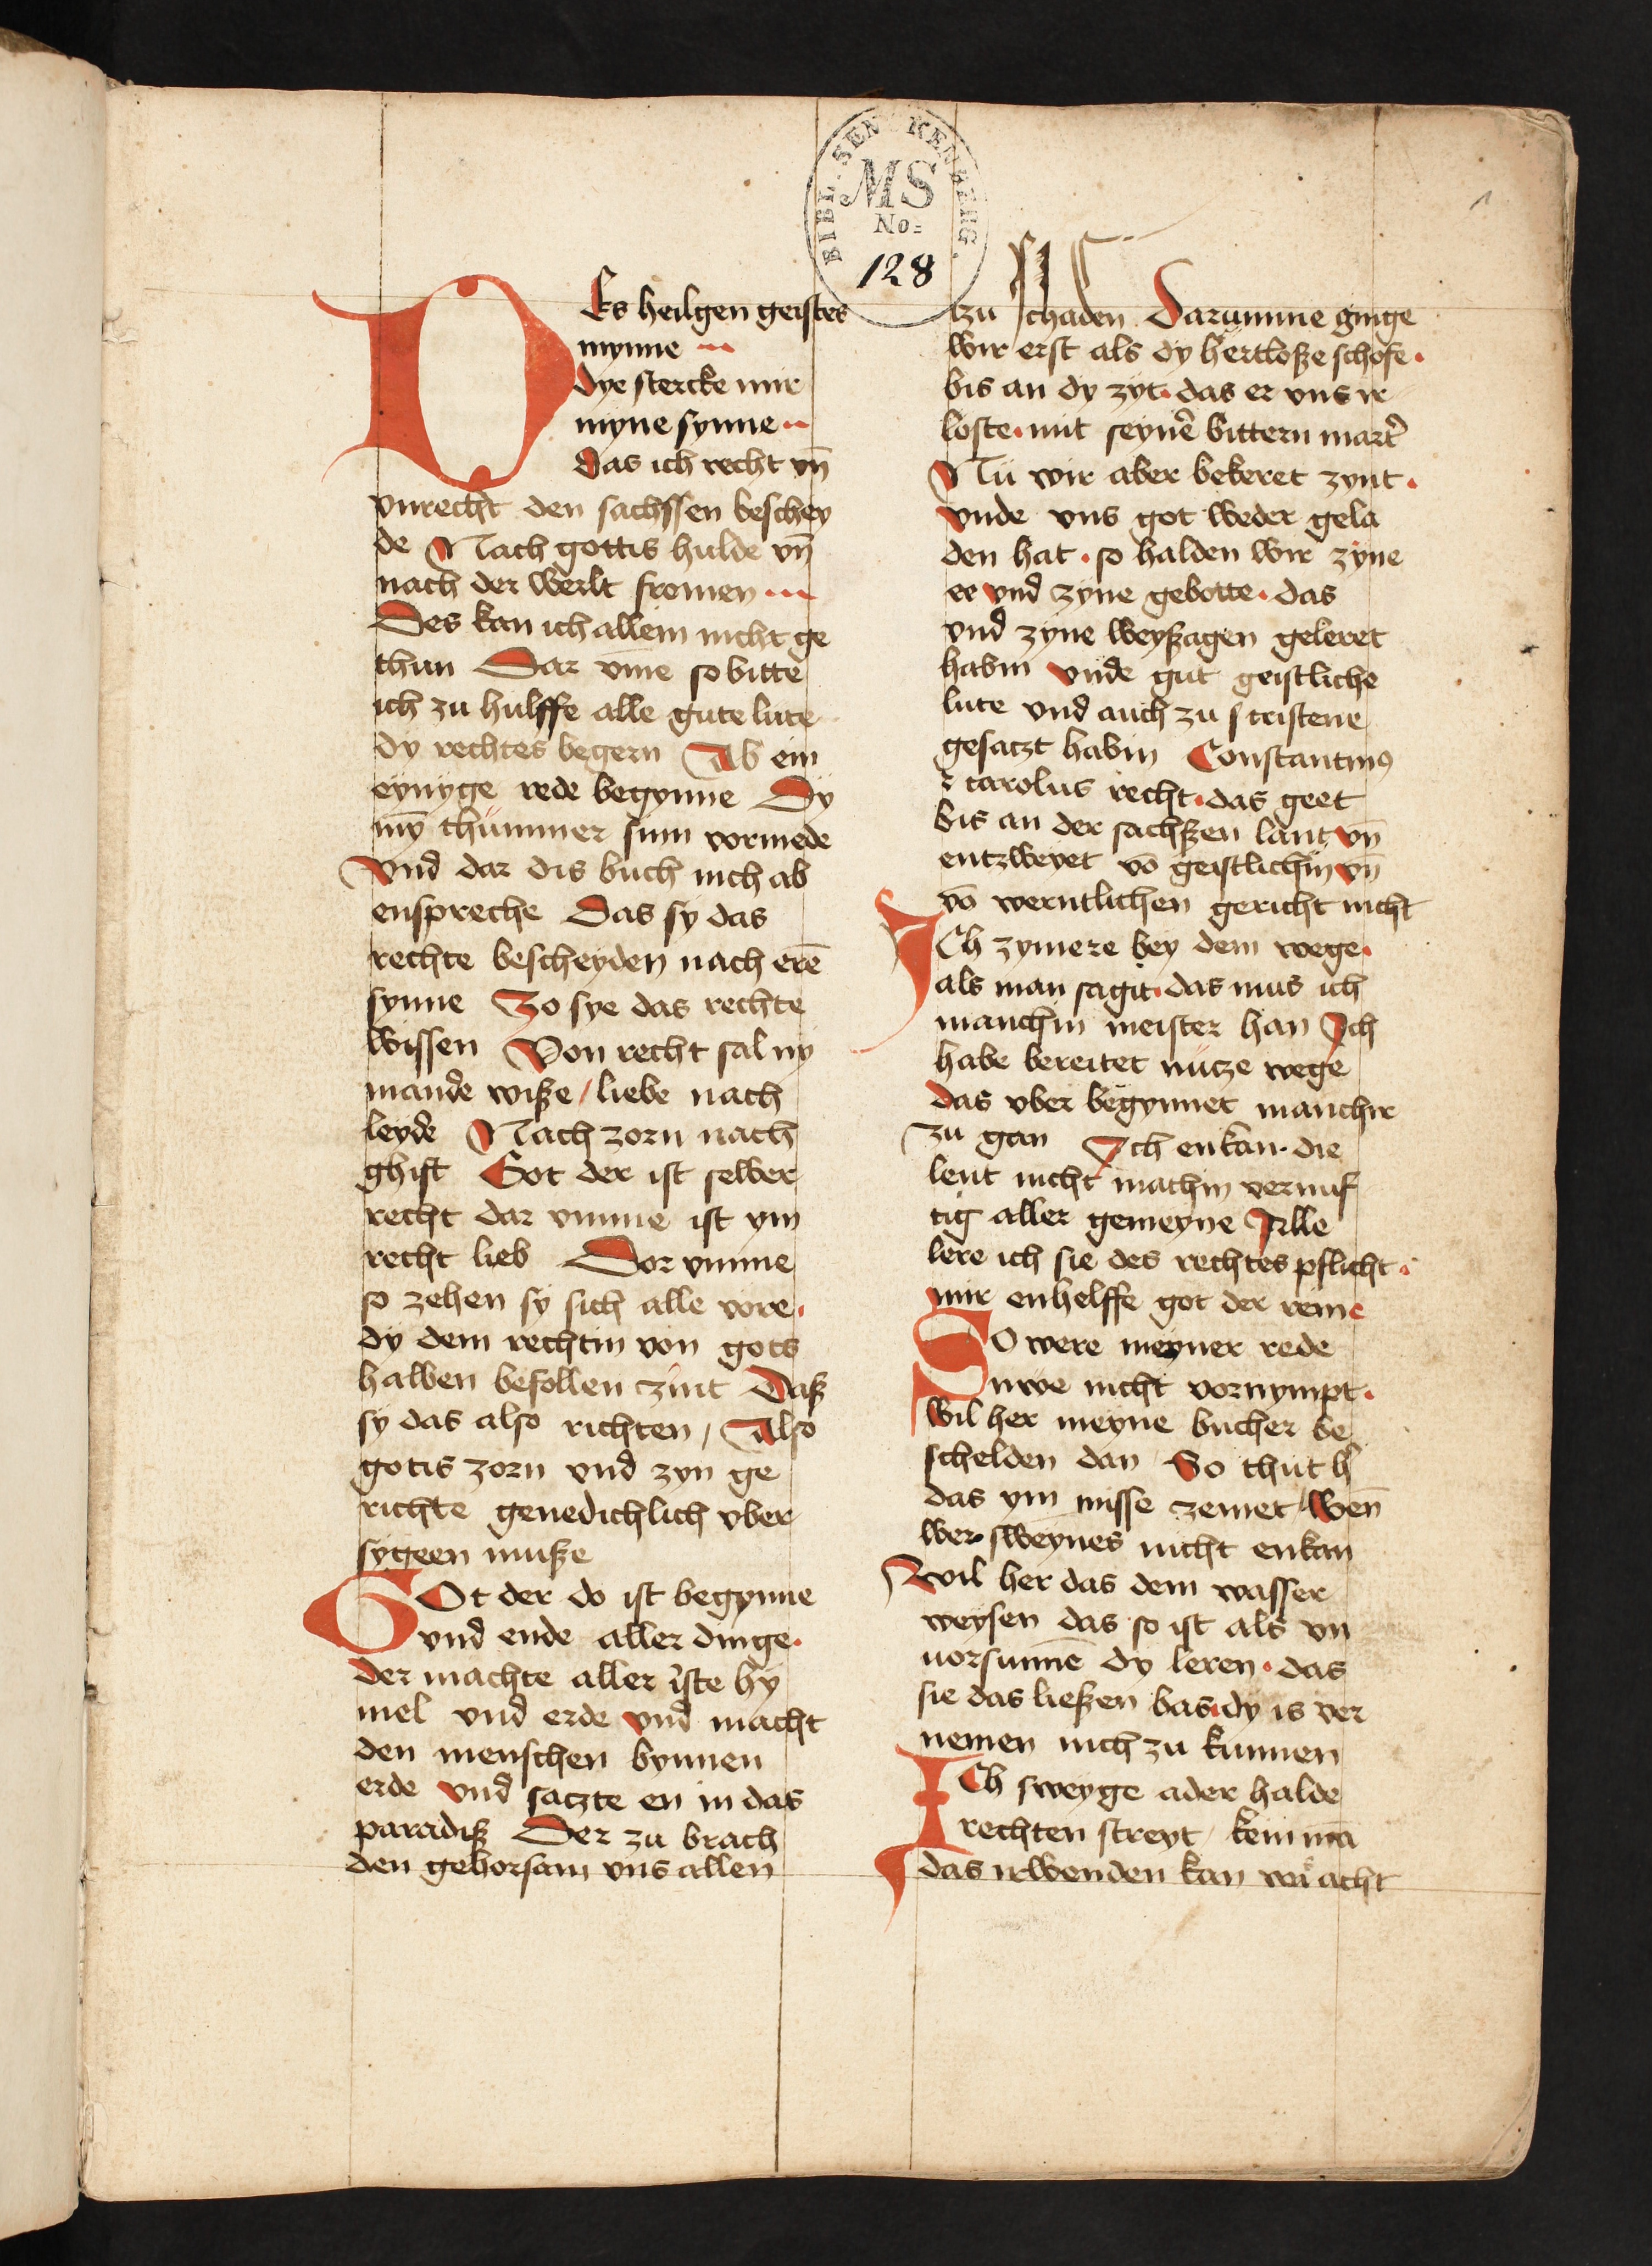 BIBL. SENKENBERG.
MS
No=
128
1
DEs heilgen geistes
mynne
dye stercke mir
myne synne
das ich recht vn̄
vnrecht den sachssen beschey
de Nach gottis hulde vn̄
nach der werlt fromen
Des kan ich allein nicht ge
thun Dar vm̄e so bitte
ich zu hulffe alle gute lute
dy rechtes begern Ab ein
eynyge rede begynne Dy
my̅ thummer sinn vormede
vnd dar dis buch nich ab
enspreche Das sy das
rechte bescheyden nach ere̅
synne Zo sye das rechte
wissen Von recht sal ny
mande wisze / liebe nach
leyde Nach zorn nach
ghift Got der ist selber
recht dar vmme ist ym
recht lieb Dor vmme
so zehen sy sich alle vore.
dy dem rechtin von gots
halben befollen zint Dasz
sy das also richten / Also
gotis zorn vnd zyn ge
richte genedichlich vber
sygeen musze
GOt der do ist begynne
vnd ende aller dinge.
der machte aller iste hy
mel vnd erde vnd macht
den menschen bynnen
erde vnd saczte en in das
paradisz Der zu brach
den gehorsam vns allen
zu schaden Darumme ginge
wir erst als dy hertlosze schofe.
bis an dy zyt. das er vns ir
loste. mit seyne̅ bittern mart̉
Nu wir aber bekeret zynt.
vnde vns got weder gela
den hat. so halden wir zyne
ee vnd zyne gebotte. das
vnd zyne weyszagen geleret
habin vnde gut geistliche
lute vnd auch zu cristene
gesaczt habin Constantinꝰ
⁊ carolus recht. das geet
bis an der sachszen lant vn̄
entzweyet vo̅ geistlichin vn̄
vo̅ werntlichen gericht nicht
ICh zymere bey dem wege.
als man sagit. das mus ich
manchin meister han Ich
habe bereitet nutze wege
das vber begynnet manchir
zu gan Ich enkan. die
leut nicht machin vernuf
tig aller gemeyne Alle
lere ich sie des rechtes pflicht.
mir enhelffe got der reine
SO were meyner rede
nwe nicht vornympt.
wil her meyne bucher be
schelden dan So thut h̉
das ym misse zemet / wen̄
wer sweynes nicht enkan
wil her das dem wasser
weysen das so ist als vn
uorsunne̅ dy leren. das
sie das lieszen bas. dy is ver
nemen nich zu kunnen
ICh sweyge ader halde
rechten streyt / kein ma̅
das irwenden kan wer acht